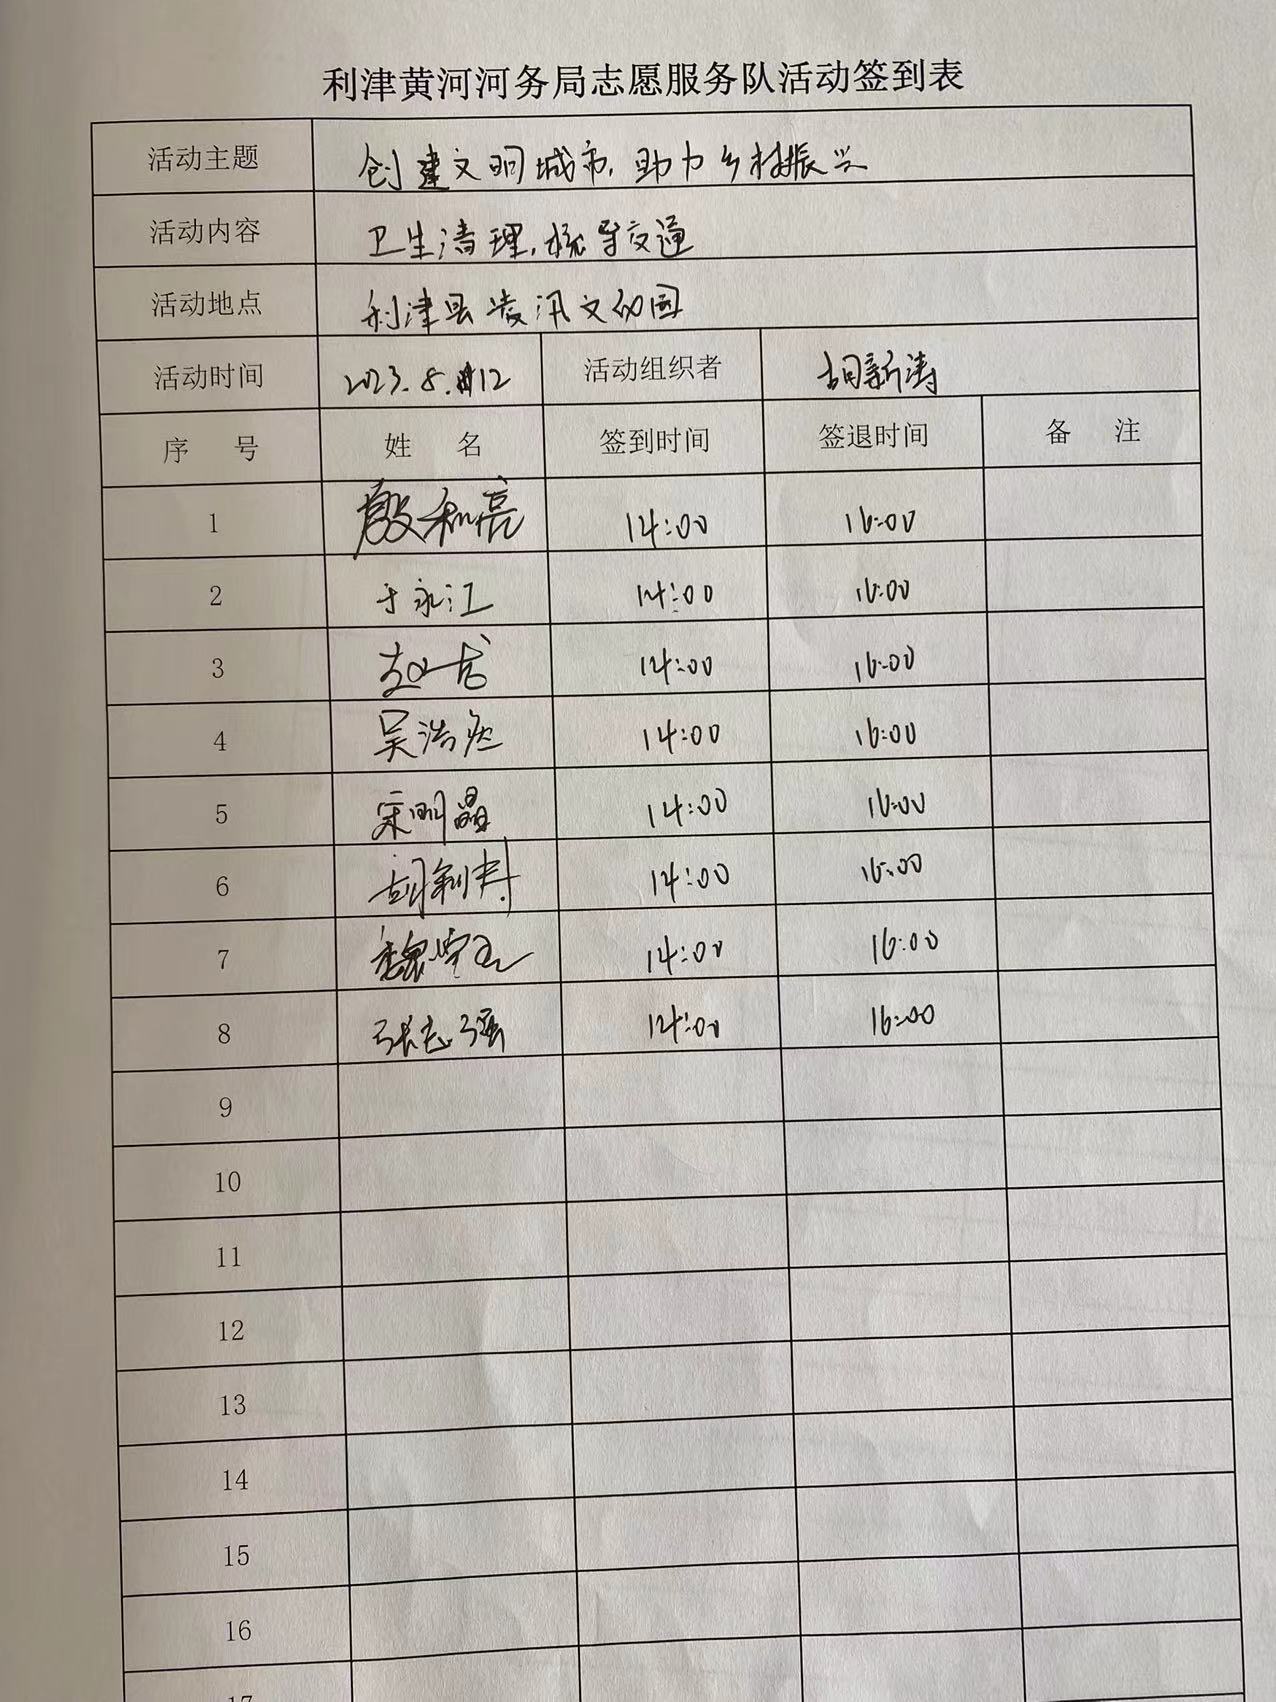 利津黄河河务局志愿服务队活动签到表
活动主题 创建文明城市,助力乡村振兴
活动内容 卫生清理,疏导交通
活动地点 利津县凌汛文幼园
活动时间 2023.8.12 活动组织者 胡新涛
序 号 姓 名 签到时间 签退时间 备 注
1 殷和亮 14:00 16:00
2 于永江 14:00 16:00
3 14:00 16:00
4 吴浩然 14:00 16:00
5 宋明晶 14:00 16:00
6 胡新涛 14:00 16:00
7 14:00 16:00
8 张志强 14:00 16:00
9
10
11
12
13
14
15
16
17